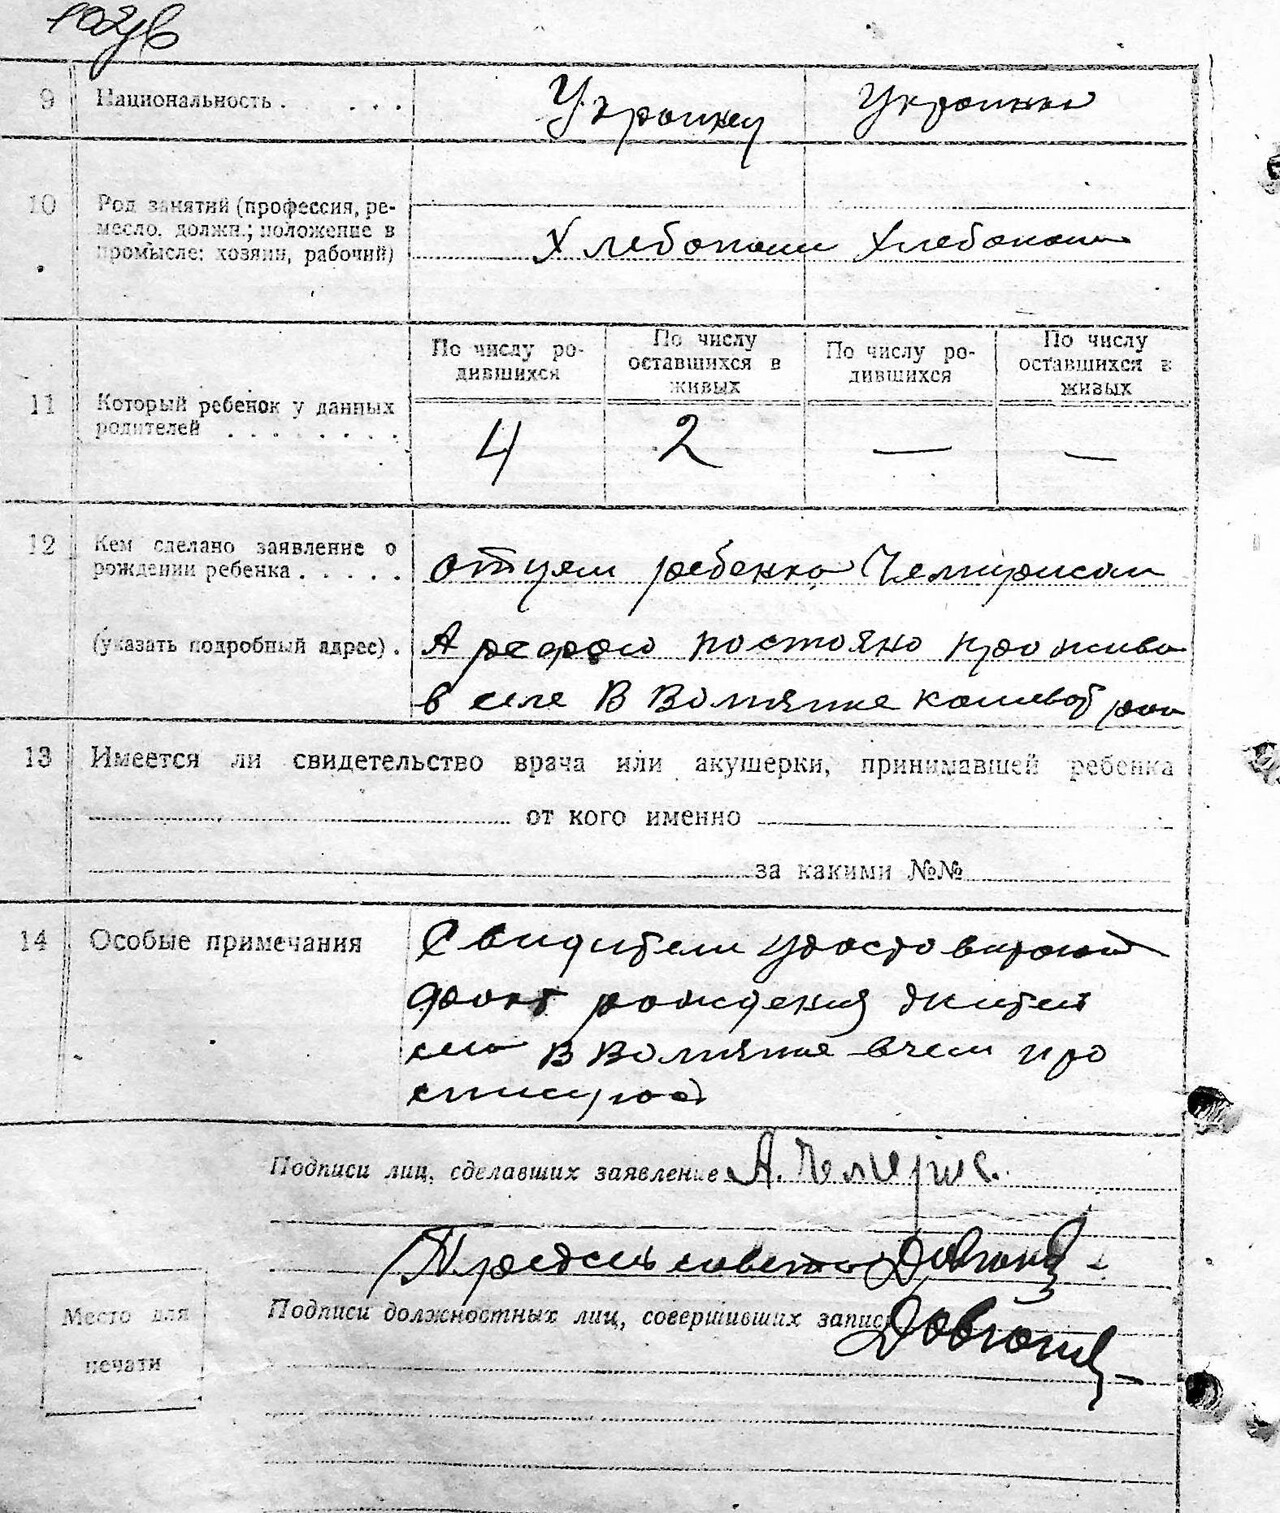 9 Национальность . . . . . Украинец Украинка
10 Род занятий (профессия, ре-
месло, должн.; положение в
промысле: хозяин, рабочий)
Хлебопаш Хлебопаш
По числу ро-
дившихся
По числу
оставшихся в
живых
По числу ро-
дившихся
По числу
оставшихся в
живых
11 Который ребенок у данных
родителей . . . . . . . .
4 2 — —
12 Кем сделано заявление о
рождении ребенка . . . . .
отцем ребенка Чемирисом
(указать подробный адрес) .
постояно прожива
в селе В
13 Имеется ли свидетельство врача или акушерки, принимавшей ребенка
от кого именно
за какими №№
14 Особые примечания
Свидители удостовиряют
факт рождения жители
села В вчем и ро
списуюс
Подписи лиц, сделавших заявление А. Чемерис.
Предсель совета
Место для
печати
Подписи должностных лиц, совершивших запись